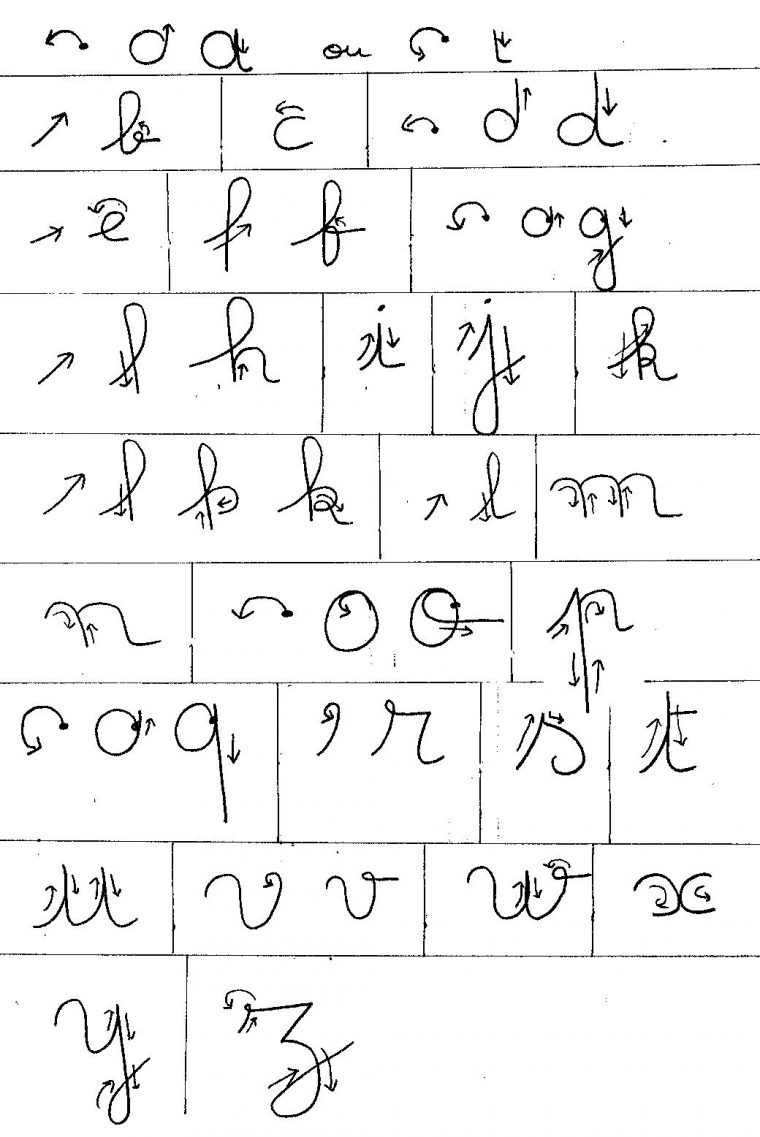 a ou
b c d
e f g
h i j k
k l m
n o p
q r s t
u v w x
y z